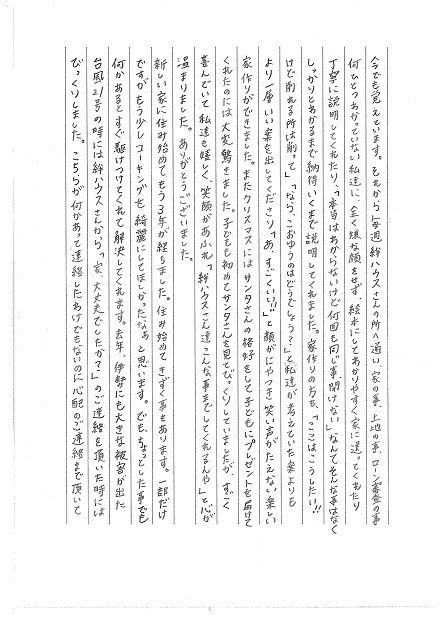 今でも覚えています。それから毎週絆ハウスさんの所へ通い、家の事、土地の事、ローン審査の事
何ひとつわかっていない私達に、全く嫌な顔をせず、絵本にしてわかりやすく家に送ってくれたり
丁寧に説明してくれたり、「本当はわからないけど何回も同じ事、聞けない」なんてそんな事はなく
しっかりとわかるまで納得いくまで説明してくれました。家作りの方も、「ここはこうしたい!!
けど削れる所は削って」「なら、こおゆうのはどうでしょう?」と私達が考えていた案よりも
より一層いい案を出してくださり「あ、すごくいい!!」と顔がにやつき笑い声がたえない楽しい
家作りができました。またクリスマスにはサンタさんの格好をして子どもにプレゼントを届けて
くれたのには大変驚きました。子どもも初めてサンタさんを見てびっくりしていましたが、すごく
喜んでいて私達も嬉しく、笑顔があふれ「絆ハウスさん達こんな事までしてくれるんや」と心が
温まりました。ありがとうございました。
新しい家に住み始めてもう3年が経ちました。住み始めてきずく事もあります。一部だけ
ですがもう少しコーキングを綺麗にしてほしかったなぁと思います。でも、ちょっとした事でも
何かあるとすぐ駆けつけてくれて解決してくれます。去年、伊勢にも大きな被害が出た
台風21号の時には絆ハウスさんから「家、大丈夫でしたか?」のご連絡を頂いた時には
びっくりしました。こちらが何かあって連絡したわけでもないのに心配のご連絡まで頂いて